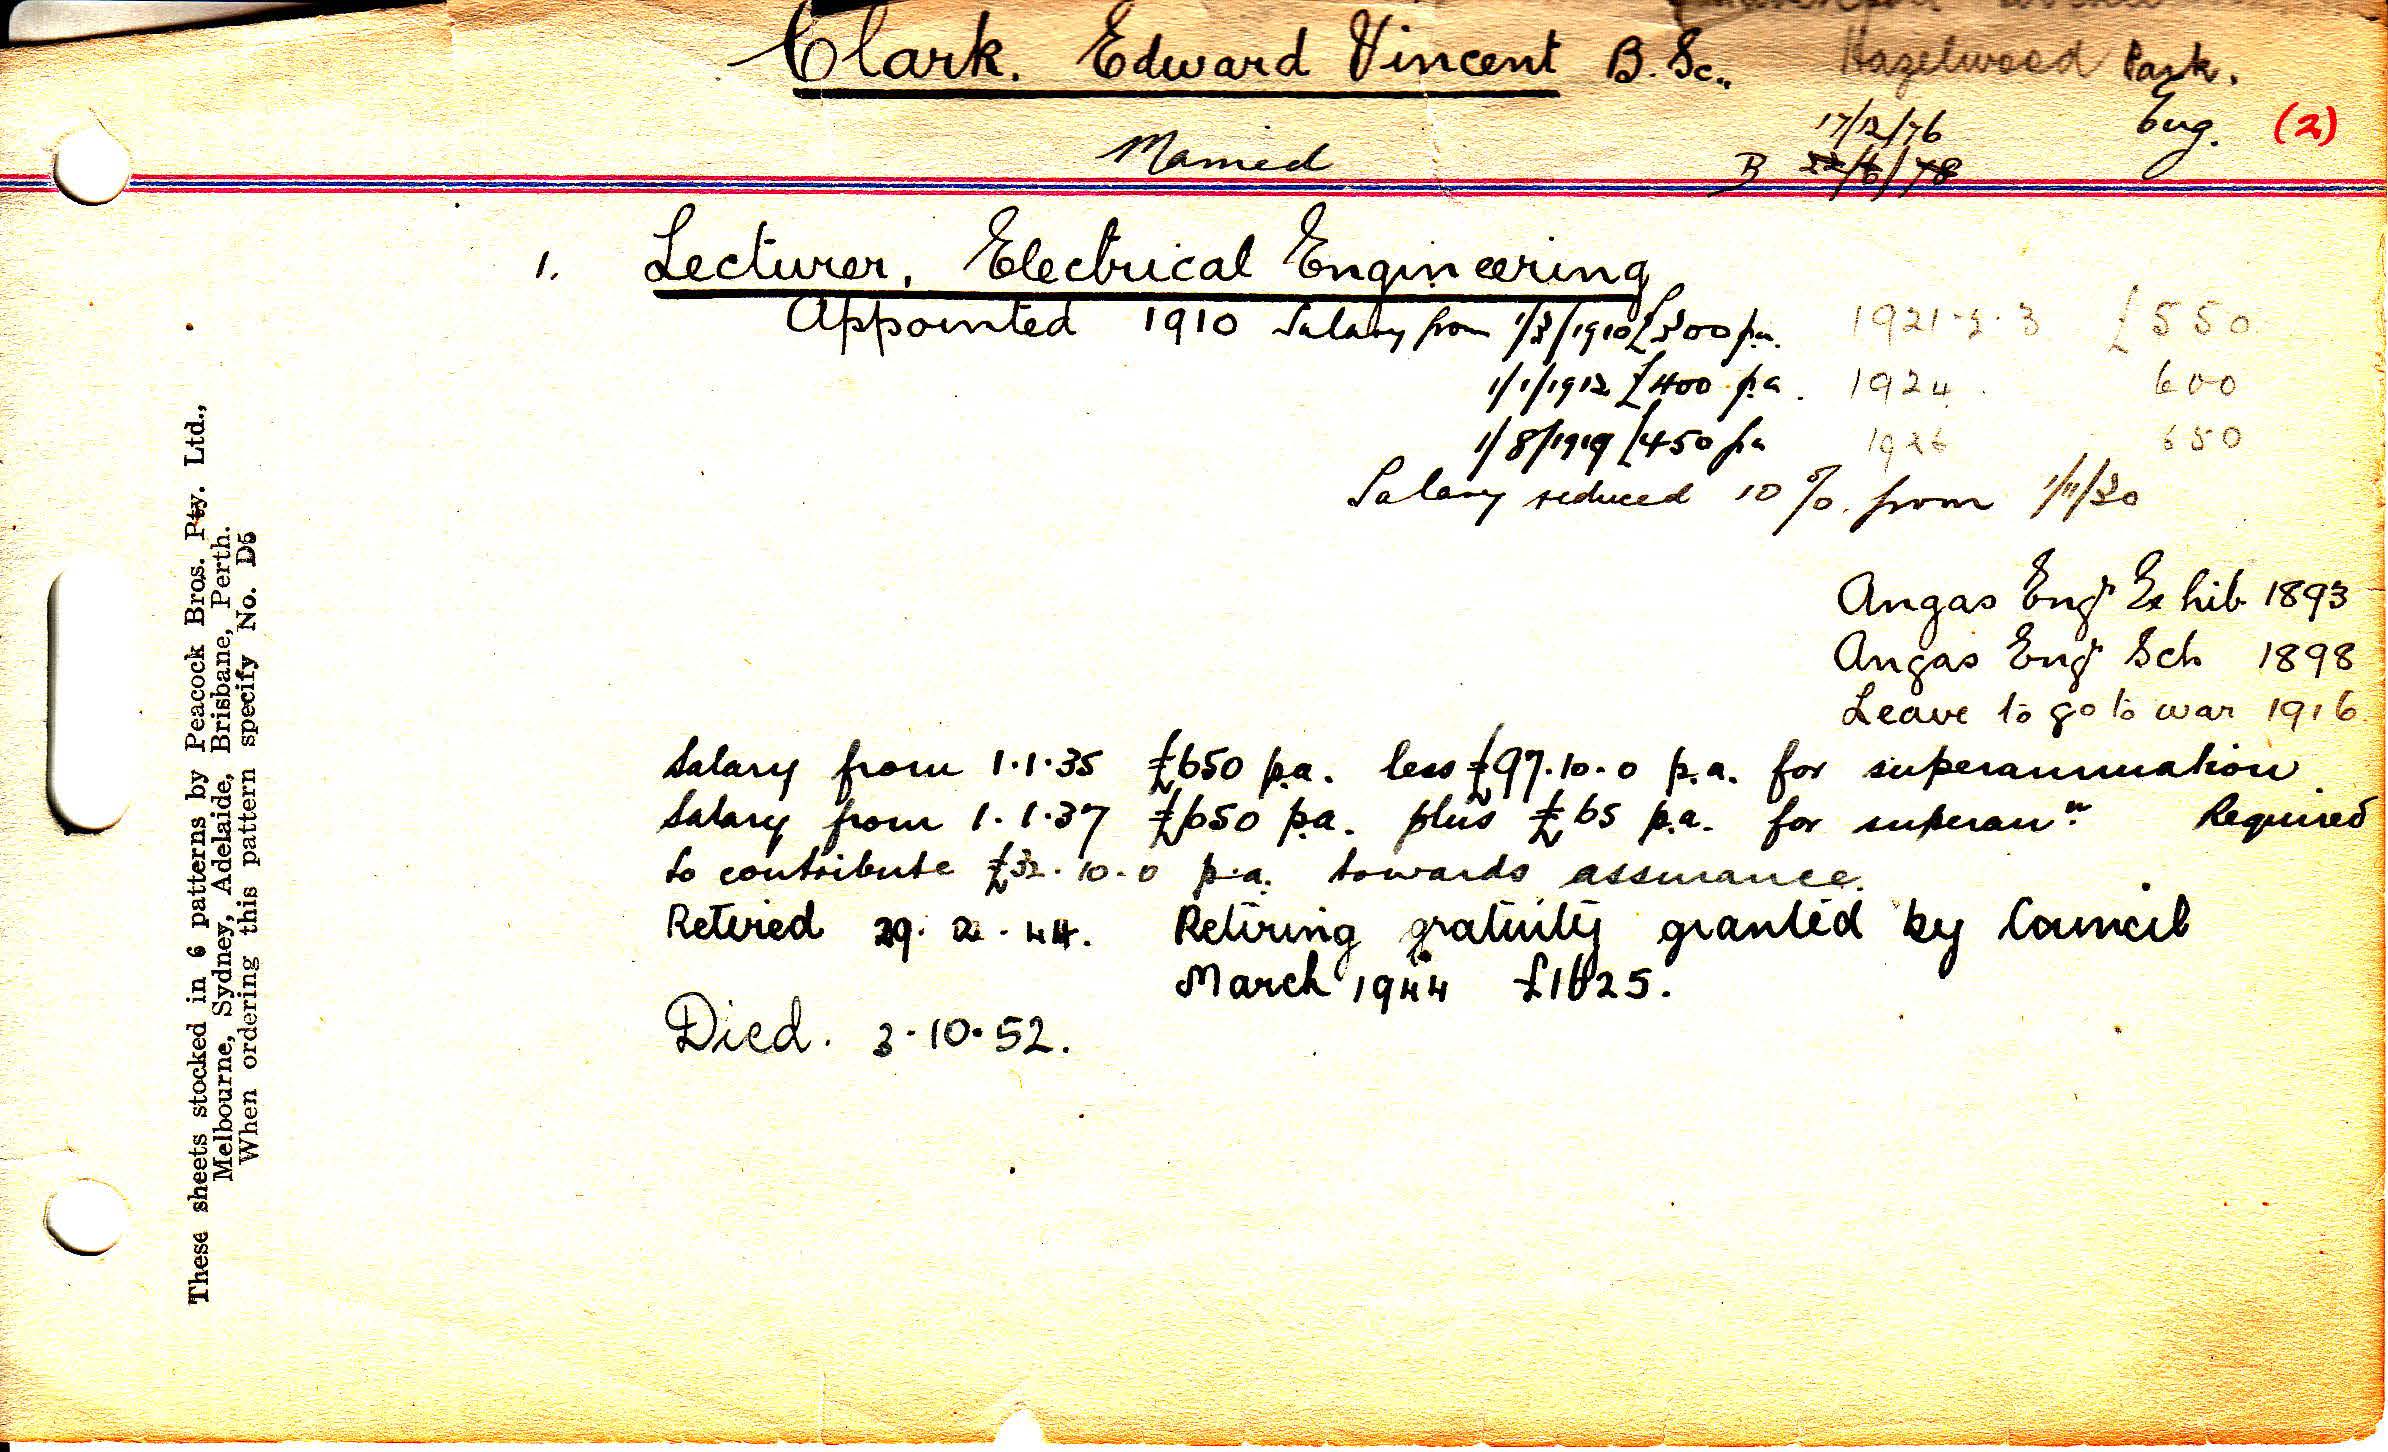 Clark. Edward Vincent B.Sc., Hazelwood Park.
Married
17/12/76
Eng. (2)
B 22/6/78
1. Lecturer, Electrical Engineering
Appointed 1910 Salary from 1/3/1910 £300 p.a. 1921-2-3 £550
1/1/1912 £400 p.a. 1924. 600
1/8/1919 £450 pa 1926 650
Salary reduced 10%. from 1/11/30
Angas Eng Exhib 1893
Angas Eng Sch 1898
Leave to go to war 1916
Salary from 1.1.35 £650 p.a. less £97.10.0 p.a. for superannuation
Salary from 1.1.37 £650 p.a. plus £65 p.a. for superann. Required
to contribute £32.10.0 p.a. towards assurance.
Retired 29.2.44. Retiring gratuity granted by Council
March 1944 £1625.
Died. 3.10.52.
These sheets stocked in 6 patterns by Peacock Bros. Pty. Ltd.,
Melbourne, Sydney, Adelaide, Brisbane, Perth.
When ordering this pattern specify No. D5